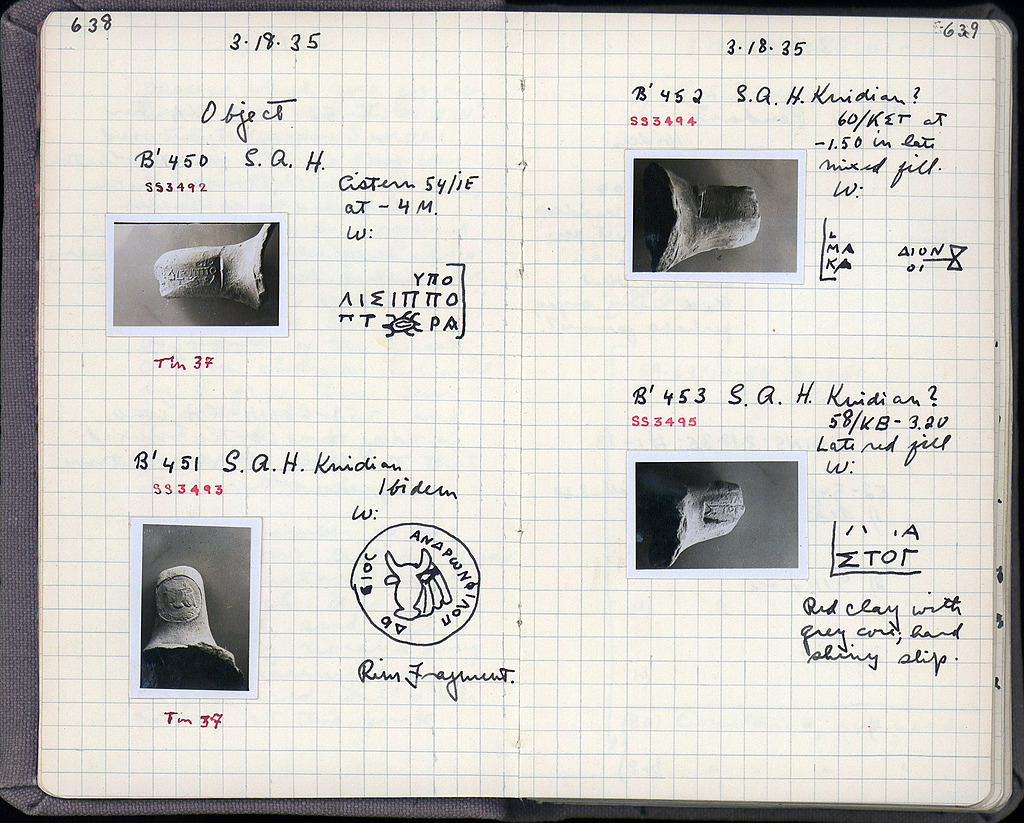 638
3·18·35
Object
B' 450 S. A. H.
SS3492
Cistern 54/ΙΕ
at - 4 M.
W:
ΥΠΟ
ΛΙΣΙΠΠΟ
ΠΤ ΡΑ
Tin 37
B' 451 S. A. H. Knidian
SS3493
Ibidem
W:
ΑΝΔΡΩΝ
ΙΛΟΠ
ΔΟ
ΕΙΟΣ
Rim Fragment.
Tin 37
639
3·18·35
B' 452 S. A. H. Knidian?
SS3494
60/ΚΣΤ at
-1.50 in late
mixed fill.
W:
ΜΑ ΔΙΟΝ
ΚΑ ΟΙ
B' 453 S. A. H. Knidian?
SS3495
58/ΚΒ - 3.20
Late red fill
W:
Α
ΣΤΟΓ
Red clay with
grey core, hard
shiny slip.